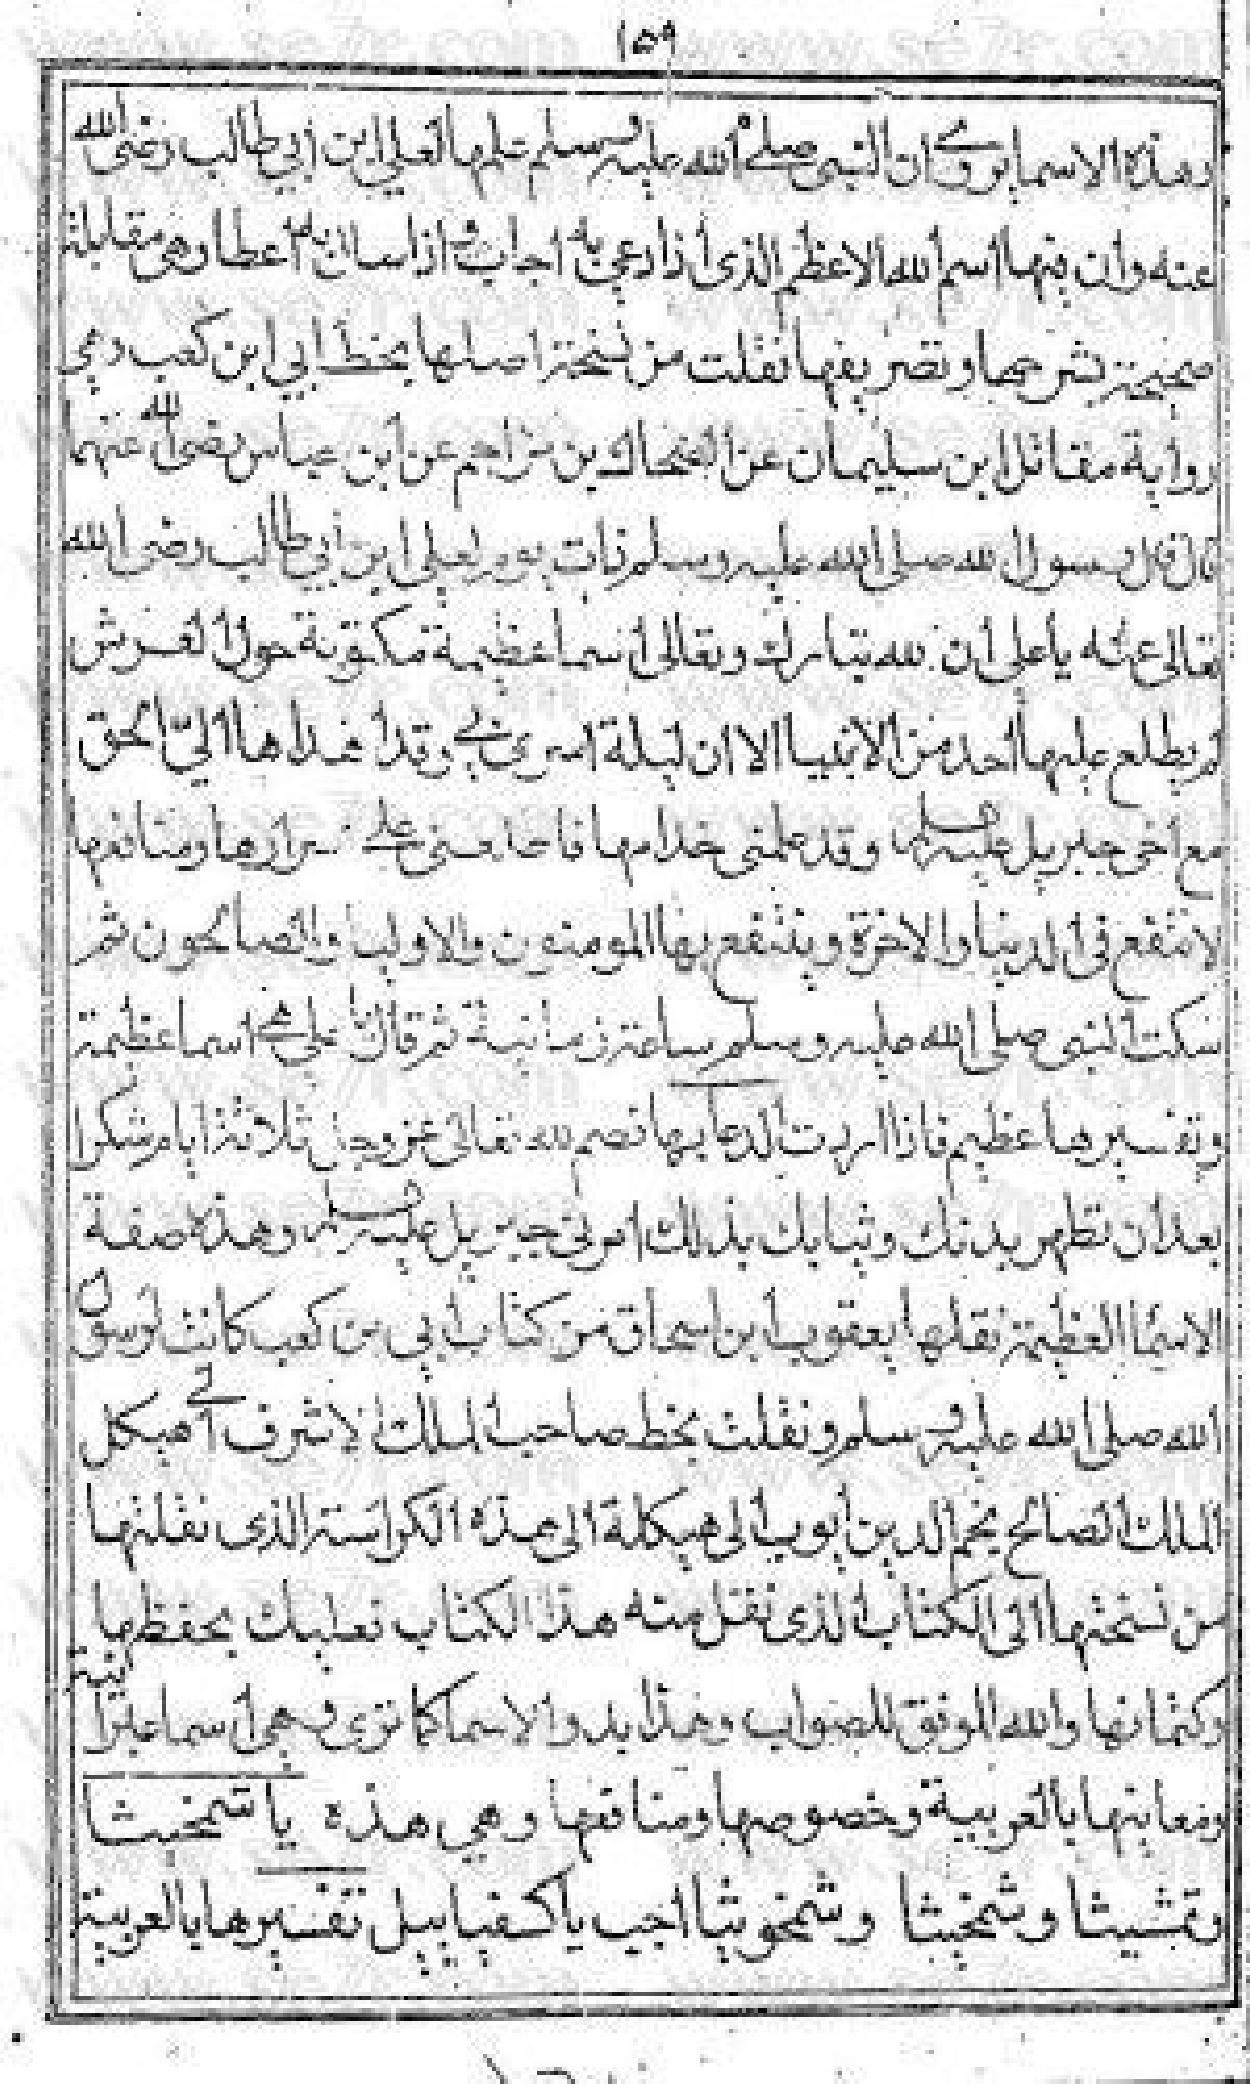 ١٥٩
وهذه الاسما يروى ان النبي صلى الله عليه وسلم علمها لعلي ابن ابي طالب رضي الله
عنه وان فيها اسم الله الاعظم الذي اذا دعي به اجاب واذا سال به اعطا وهي مقابلة
صحيحة بشرحها وتصريفها نقلت من نسخة اصلها بخط ابي ابن كعب وهي
رواية مقاتل ابن سليمان عن الضحاك بن مزاحم عن ابن عباس رضي الله عنهما
قال قال رسول الله صلى الله عليه وسلم ذات يوم لعلي ابن ابي طالب رضي الله
تعالى عنه يا علي ان لله تبارك وتعالى اسما عظيمة مكتوبة حول العرش
لم يطلع عليها احد من الانبيا الا ان ليلة اسرى بي وقد اهداها الي الحق
مع اخي جبريل عليه السلام وقد علمني خدامها على اسرارها ومنافعها
لانتفع في الدنيا والاخرة وينتفع بها المومنون والاوليا والصالحون ثم
سكت النبي صلى الله عليه وسلم ساعة زمانية ثم قال يا علي هي اسما عظيمة
وتفسيرها عظيم فاذا اردت الدعا بها تصم لله تعالى عز وجل ثلاثة ايام شكرا
بعد ان تطهر بدنك وثيابك بذلك امرني جبريل عليه السلام وهذه صفة
الاسما العظيمة نقلها يعقوب ابن اسحاق من كتاب ابي بن كعب كانت لرسول
الله صلى الله عليه وسلم ونقلت بخط صاحب الملك الاشرف الى هيكل
الملك الصالح نجم الدين ايوب الى هيكلة الى هذه الكراسة الذي نقلتها
من نسختها الى الكتاب الذي نقل منه هذا الكتاب فعليك بحفظها
وكتمانها والله الموفق للصواب وهذا بدو الاسما كما ترى وهي اسما عبرانية
ومعانيها بالعربية وخصوصها ومنافعها وهي هذه يا شمخيثا
وتمشيثا وشمخيثا وشمخوثا اجب يا كسفياييل تفسيرها بالعربية